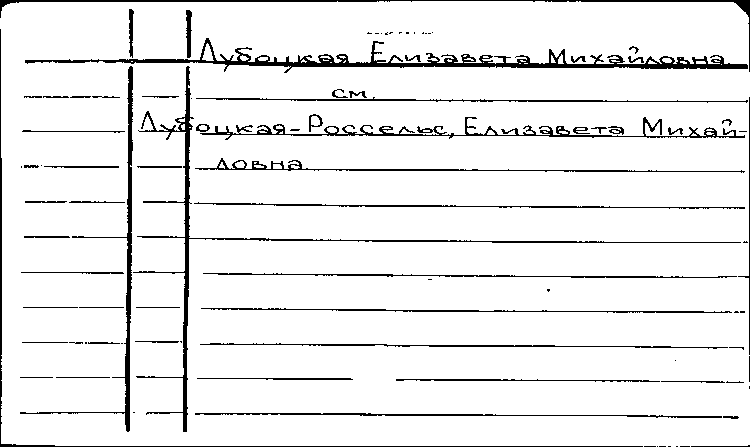 Лубоцкая Елизавета Михайловна
см.
Лубоцкая-Россельс, Елизавета Михай-
ловна